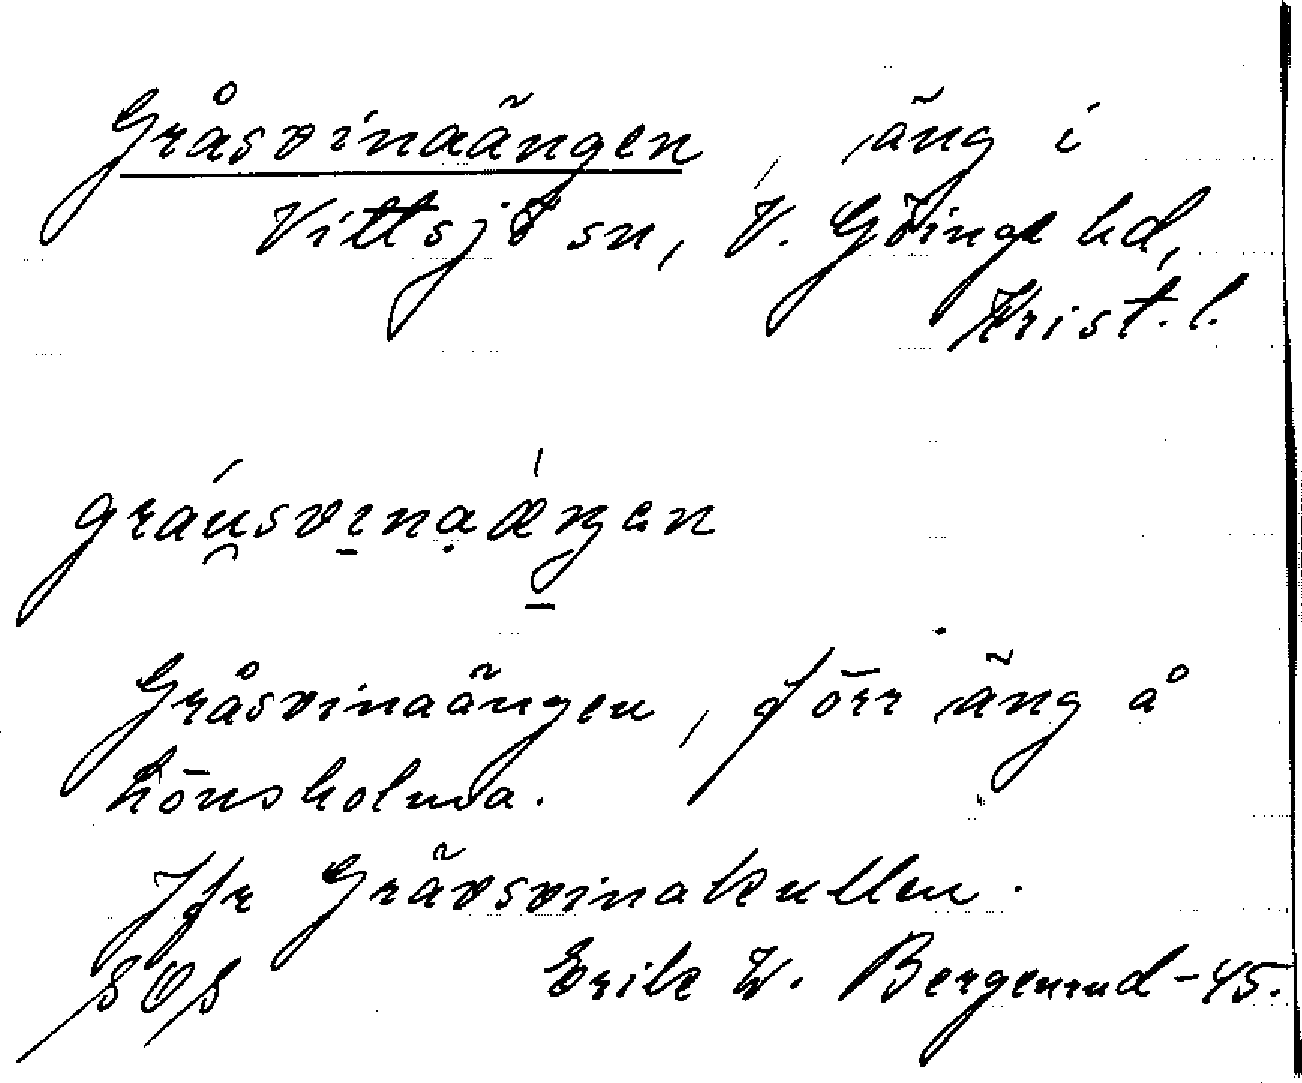 Gråsvinaängen, äng i
Vittsjö sn, V. Göinge hd,
Krist. l.
gráusvinaǽŋen
Gråsvinaängen, förr äng å
Lönsholma.
Jfr Grävsvinakullen.
Erik W. Bergenrud -45.